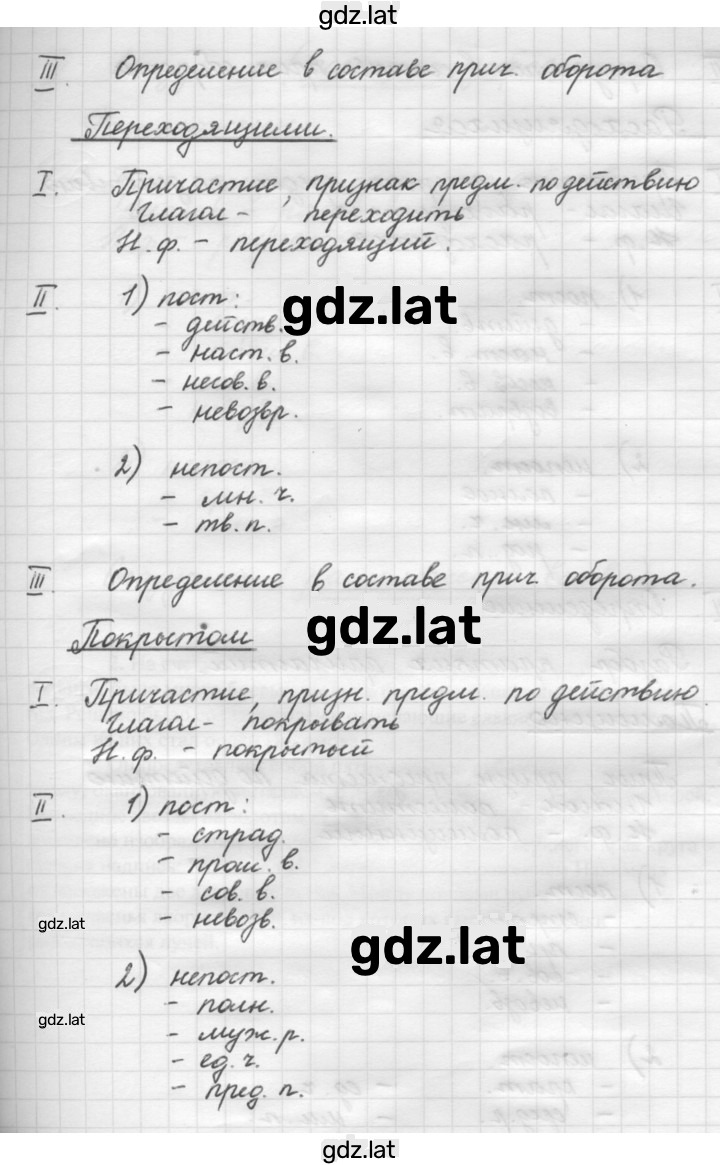 gdz.lat
III. Определение в составе прич. оборота
Переходящими.
I. Причастие, признак предм. по действию
Глагол - переходить
Н.ф. - переходящий.
II. 1) пост:
gdz.lat
- действ.
- наст. в.
- несов. в.
- невозвр.
2) непост.
- мн. ч.
- тв. п.
III. Определение в составе прич. оборота.
gdz.lat
Покрытом
I. Причастие, призн. предм. по действию.
Глагол - покрывать
Н.ф. - покрытый
II. 1) пост:
- страд.
- прош. в.
- сов. в.
- невозв.
gdz.lat
gdz.lat
2) непост.
- полн.
gdz.lat
- муж. р.
- ед. ч.
- пред. п.
gdz.lat